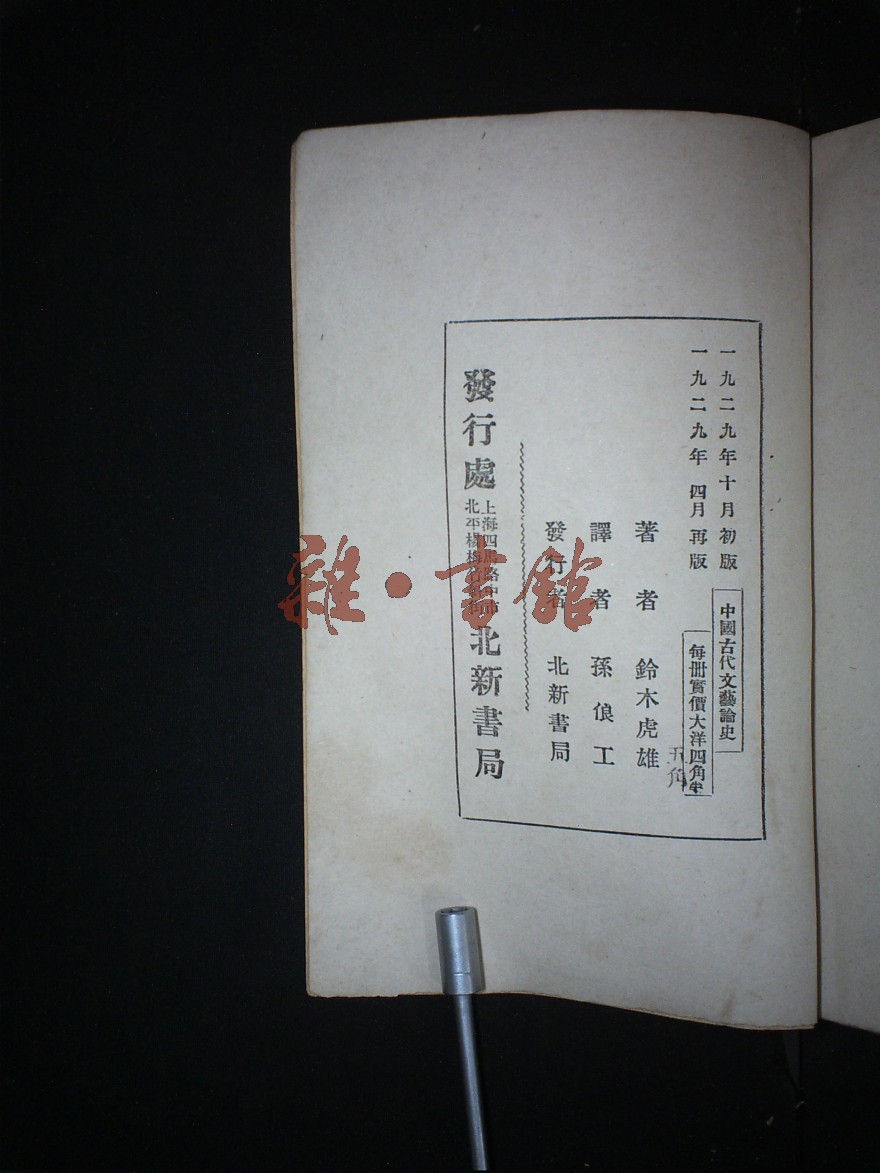 一九二九年十月初版
一九二九年四月再版
中國古代文藝論史
每冊實價大洋四角半
五角
著者 鈴木虎雄
譯者 孫俍工
發行者 北新書局
發行處
上海四馬路中市
北平楊梅竹斜街
北新書局
雜·書館